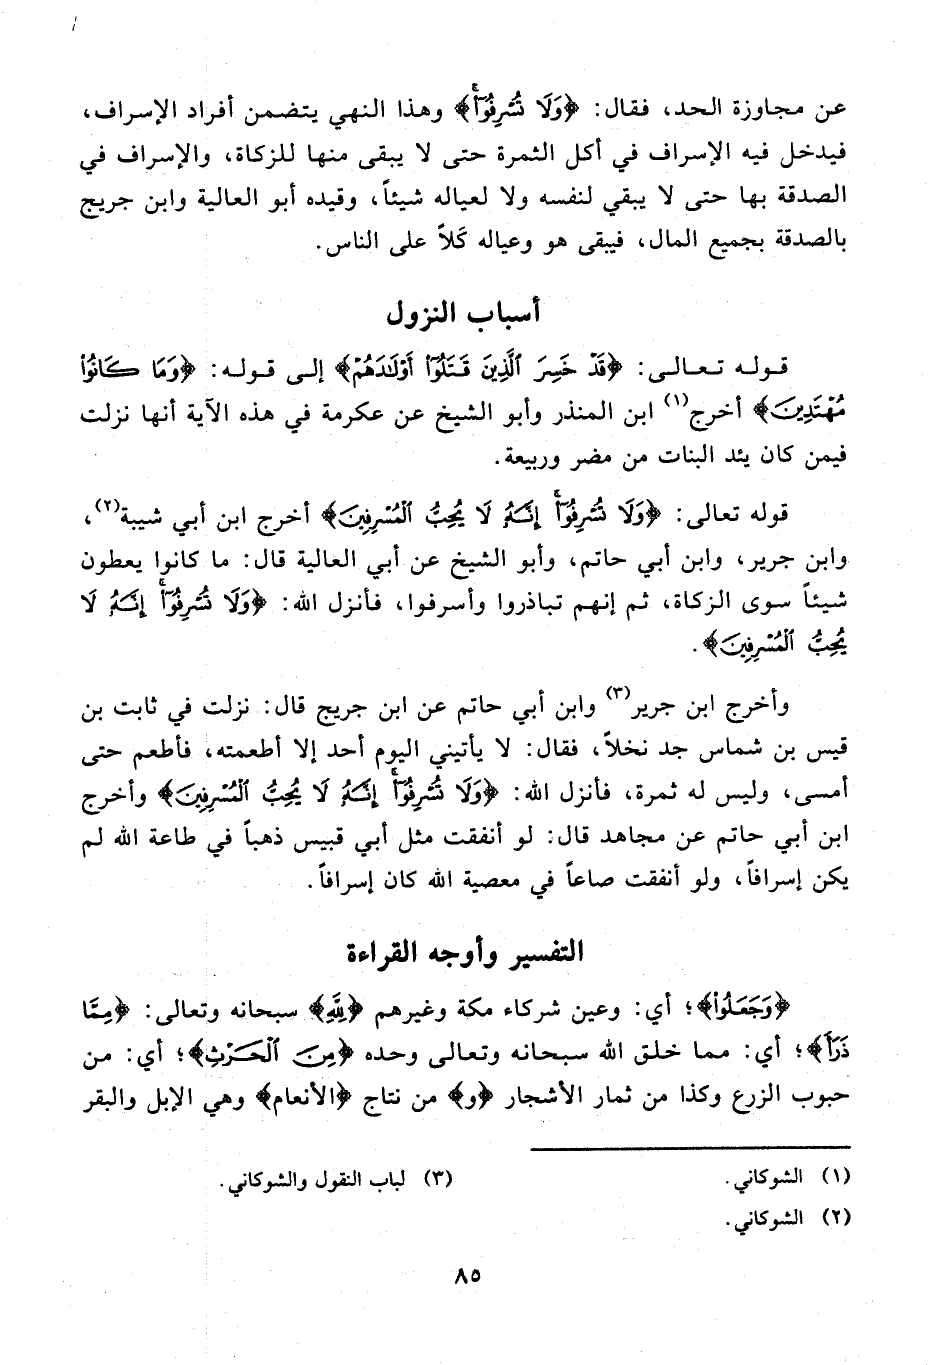 عن مجاوزة الحد، فقال: ﴿وَلَا تُسْرِفُوٓا۟ۚ﴾ وهذا النهي يتضمن أفراد الإسراف،
فيدخل فيه الإسراف في أكل الثمرة حتى لا يبقى منها للزكاة، والإسراف في
الصدقة بها حتى لا يبقي لنفسه ولا لعياله شيئاً، وقيده أبو العالية وابن جريج
بالصدقة بجميع المال، فيبقى هو وعياله كَلاً على الناس.
أسباب النزول
قوله تعالى: ﴿قَدْ خَسِرَ ٱلَّذِينَ قَتَلُوٓا۟ أَوْلَـٰدَهُمْ﴾ إلى قوله: ﴿وَمَا كَانُوا۟
مُهْتَدِينَ﴾ أخرج(١) ابن المنذر وأبو الشيخ عن عكرمة في هذه الآية أنها نزلت
فيمن كان يئد البنات من مضر وربيعة.
قوله تعالى: ﴿وَلَا تُسْرِفُوٓا۟ۚ إِنَّهُۥ لَا يُحِبُّ ٱلْمُسْرِفِينَ﴾ أخرج ابن أبي شيبة(٢)،
وابن جرير، وابن أبي حاتم، وأبو الشيخ عن أبي العالية قال: ما كانوا يعطون
شيئاً سوى الزكاة، ثم إنهم تباذروا وأسرفوا، فأنزل الله: ﴿وَلَا تُسْرِفُوٓا۟ۚ إِنَّهُۥ لَا
يُحِبُّ ٱلْمُسْرِفِينَ﴾.
وأخرج ابن جرير(٣) وابن أبي حاتم عن ابن جريج قال: نزلت في ثابت بن
قيس بن شماس جد نخلاً، فقال: لا يأتيني اليوم أحد إلا أطعمته، فأطعم حتى
أمسى، وليس له ثمرة، فأنزل الله: ﴿وَلَا تُسْرِفُوٓا۟ۚ إِنَّهُۥ لَا يُحِبُّ ٱلْمُسْرِفِينَ﴾ وأخرج
ابن أبي حاتم عن مجاهد قال: لو أنفقت مثل أبي قبيس ذهباً في طاعة الله لم
يكن إسرافاً، ولو أنفقت صاعاً في معصية الله كان إسرافاً.
التفسير وأوجه القراءة
﴿وَجَعَلُوا۟﴾؛ أي: وعين شركاء مكة وغيرهم ﴿لِلَّهِ﴾ سبحانه وتعالى: ﴿مِمَّا
ذَرَأَ﴾؛ أي: مما خلق الله سبحانه وتعالى وحده ﴿مِنَ ٱلْحَرْثِ﴾؛ أي: من
حبوب الزرع وكذا من ثمار الأشجار ﴿و﴾ من نتاج ﴿الأنعام﴾ وهي الإبل والبقر
(١) الشوكاني.
(٢) الشوكاني.
(٣) لباب النقول والشوكاني.
٨٥